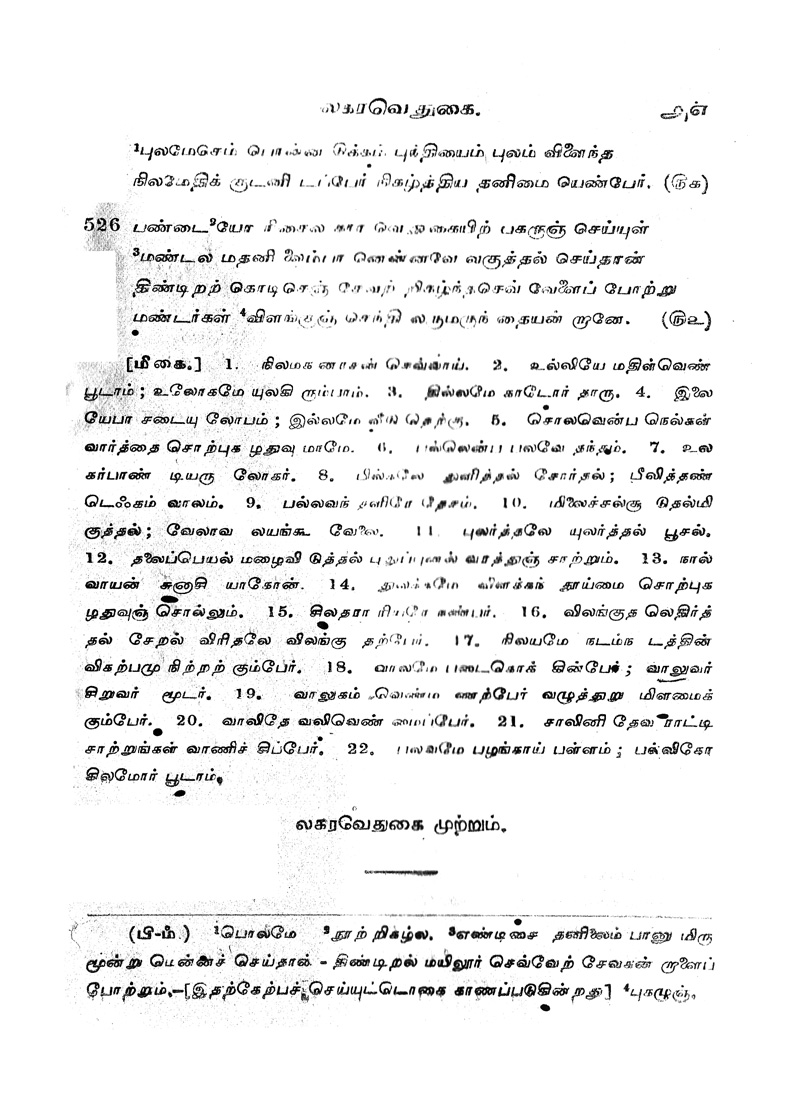 லகரவெதுகை. அஎ
¹புலமேசெம் பொன்ன டுக்கம் புந்தியைம் புலம் விளைந்த
நிலமேதிக் குடனி டப்பேர் நிகழ்த்திய தனிமை யெண்பேர். (ருக)
526 பண்டை²யோ ரிசைல கார வெதுகையிற் பகருஞ் செய்யுள்
³மண்டல மதனி லைம்பா னெண்ணவே வகுத்தல் செய்தான்
திண்டிறற் கொடிசெஞ் சேவற் றிகழ்ந்தசெவ் வேளைப் போற்று
மண்டர்கள் ⁴விளங்குஞ் செந்தி லகுமருந் தையன் றானே. (ருஉ)
[மீகை.] 1. நிலமக ணாசன் செவ்வாய். 2. உல்லியே மதிள்வெண்
பூடாம்; உலோகமே யுலகி ரும்பாம். 3. தில்லமே காடோர் தாரு. 4. இலை
யேபா சடையு லோபம்; இல்லமே வீடு தெற்கு. 5. சொலவென்ப நெல்கள்
வார்த்தை சொற்புக ழதுவு மாமே. 6. பல்லென்ப பலவே தந்தும். 7. உல
கர்பாண் டியரு லோகர். 8. பில்கலே துளித்தல் சோர்தல்; பீலித்தண்
டெஃகம் வாலம். 9. பல்லவந் தளிரே தேசம். 10. மிலைச்சல்சூ டுதல்மி
குத்தல்; வேலாவ லயங்கூ வேலை. 11. புலர்த்தலே யுலர்த்தல் பூசல்.
12. தலைப்பெயல் மழைவி டுத்தல் புதுப்புனல் வரத்துஞ் சாற்றும். 13. நால்
வாயன் சுனாசி யாகோன். 14. துலக்கமே விளக்கந் தூய்மை சொற்புக
ழதுவுஞ் சொல்லும். 15. சிலதரா ரியரே கண்டீர். 16. விலங்குத லெதிர்த்
தல் சேறல் விரிதலே விலங்கு தற்பேர். 17. நிலயமே நடம்ந டத்தின்
விகற்பமு நிற்றற் கும்பேர். 18. வாலமே படைகொக் கின்பேர்; வாலுவர்
சிறுவர் மூடர். 19. வாலுகம் வெண்ம ணற்பேர் வழுத்துறு மிளமைக்
கும்பேர். 20. வாலிதே வலிவெண் மைப்பேர். 21. சாலினி தேவ ராட்டி
சாற்றுங்கள் வாணிச் சிப்பேர். 22. பலவமே பழங்காய் பள்ளம்; பல்விகோ
கிலமோர் பூடாம்.
லகரவேதுகை முற்றும்.
(பி-ம்.) ¹பொலமே ²நூற் றிகழ்ல. ³எண்டிசை தனிலைம் பானு மிரு
மூன்று மென்னச் செய்தான் - திண்டிறல் மயிலூர் செவ்வேற் சேவகன் றாளைப்
போற்றும்.—[இதற்கேற்பச் செய்யுட்டொகை காணப்படுகின்றது] ⁴புகழுஞ்.